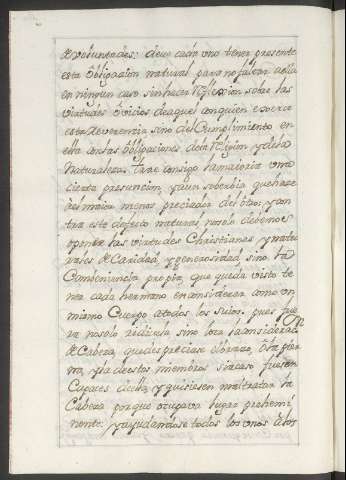 de voluntades: deve cada uno tener presente
esta obligacion natural para no faltar a ella
en ningun caso sin hacer reflexion sobre las
virtudes ò vicios de aquel con quien exerce
esta Reverencia sino del Cumplimiento en
ella con las obligaciones de la Religion y de la
Naturaleza. Trae consigo la maioria una
cierta presuncion, y aun soberbia que hace
del maior menos preciador del otro: y con
tra este defecto natural, no solo debemos
oponer las virtudes Christianas y natu
rales de Caridad, y generosidad sino la
Combeniencia propia, que queda visto te
ner cada hermano en considerar como un
mismo Cuerpo a todos los suios. pues fue
ra no solo ridicula sino loca la consideracion
de Cabeza, que despreciase el brazo, ò la pier
na, y la de estos miembros si acaso fuesen
Capaces de ella, y quisiesen maltratar la
Cabeza porque ocupava lugar prehemi
nente. y ayudandose todos los unos a los